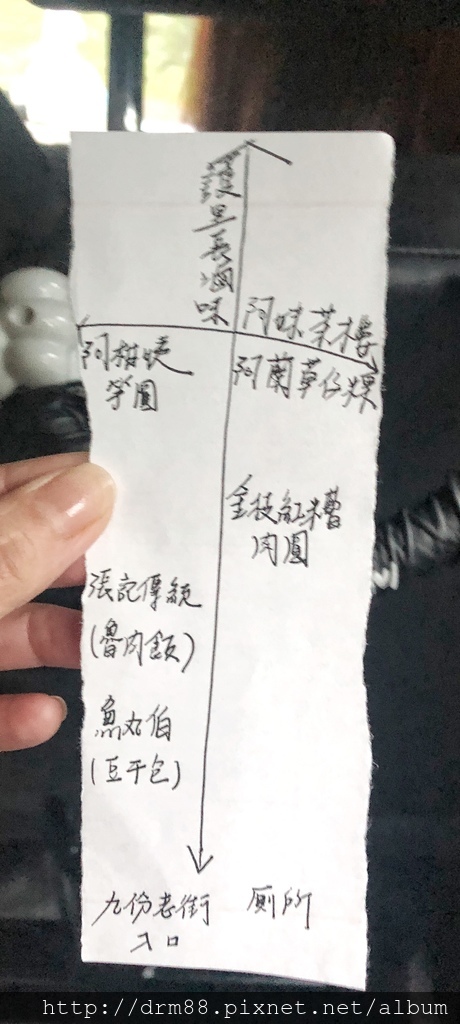 護里長滷味
阿妹茶樓
阿柑姨
芋圓
阿蘭草仔粿
金枝紅糟
肉圓
張記傳統
(魯肉飯)
魚丸伯
(豆干包)
九份老街
入口
厠所
http://drm88.pixnet.net/album